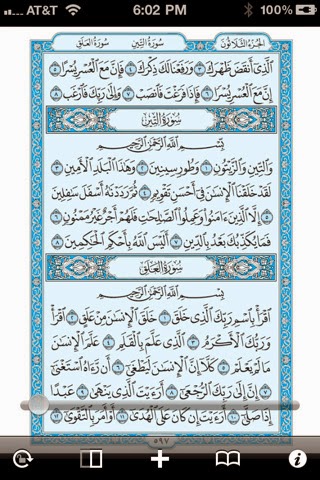 AT&T 6:02 PM 100%
الجزء الثلاثون سورة التين سورة العلق
ٱلَّذِىٓ أَنقَضَ ظَهْرَكَ ٣ وَرَفَعْنَا لَكَ ذِكْرَكَ ٤ فَإِنَّ مَعَ ٱلْعُسْرِ يُسْرًا ٥
إِنَّ مَعَ ٱلْعُسْرِ يُسْرًا ٦ فَإِذَا فَرَغْتَ فَٱنصَبْ ٧ وَإِلَىٰ رَبِّكَ فَٱرْغَب ٨
سورة التين
بِسْمِ ٱللَّهِ ٱلرَّحْمَٰنِ ٱلرَّحِيمِ
وَٱلتِّينِ وَٱلزَّيْتُونِ ١ وَطُورِ سِينِينَ ٢ وَهَٰذَا ٱلْبَلَدِ ٱلْأَمِينِ ٣
لَقَدْ خَلَقْنَا ٱلْإِنسَٰنَ فِىٓ أَحْسَنِ تَقْوِيمٍ ٤ ثُمَّ رَدَدْنَٰهُ أَسْفَلَ سَٰفِلِينَ
٥ إِلَّا ٱلَّذِينَ ءَامَنُوا۟ وَعَمِلُوا۟ ٱلصَّٰلِحَٰتِ فَلَهُمْ أَجْرٌ غَيْرُ مَمْنُونٍ ٦
فَمَا يُكَذِّبُكَ بَعْدُ بِٱلدِّينِ ٧ أَلَيْسَ ٱللَّهُ بِأَحْكَمِ ٱلْحَٰكِمِينَ ٨
سورة العلق
بِسْمِ ٱللَّهِ ٱلرَّحْمَٰنِ ٱلرَّحِيمِ
ٱقْرَأْ بِٱسْمِ رَبِّكَ ٱلَّذِى خَلَقَ ١ خَلَقَ ٱلْإِنسَٰنَ مِنْ عَلَقٍ ٢ ٱقْرَأْ
وَرَبُّكَ ٱلْأَكْرَمُ ٣ ٱلَّذِى عَلَّمَ بِٱلْقَلَمِ ٤ عَلَّمَ ٱلْإِنسَٰنَ
مَا لَمْ يَعْلَمْ ٥ كَلَّآ إِنَّ ٱلْإِنسَٰنَ لَيَطْغَىٰٓ ٦ أَن رَّءَاهُ ٱسْتَغْنَىٰٓ
٧ إِنَّ إِلَىٰ رَبِّكَ ٱلرُّجْعَىٰٓ ٨ أَرَءَيْتَ ٱلَّذِى يَنْهَىٰ ٩ عَبْدًا
إِذَا صَلَّىٰٓ ١٠ أَرَءَيْتَ إِن كَانَ عَلَى ٱلْهُدَىٰٓ ١١ أَوْ أَمَرَ بِٱلتَّقْوَىٰٓ ١٢
٥٩٧